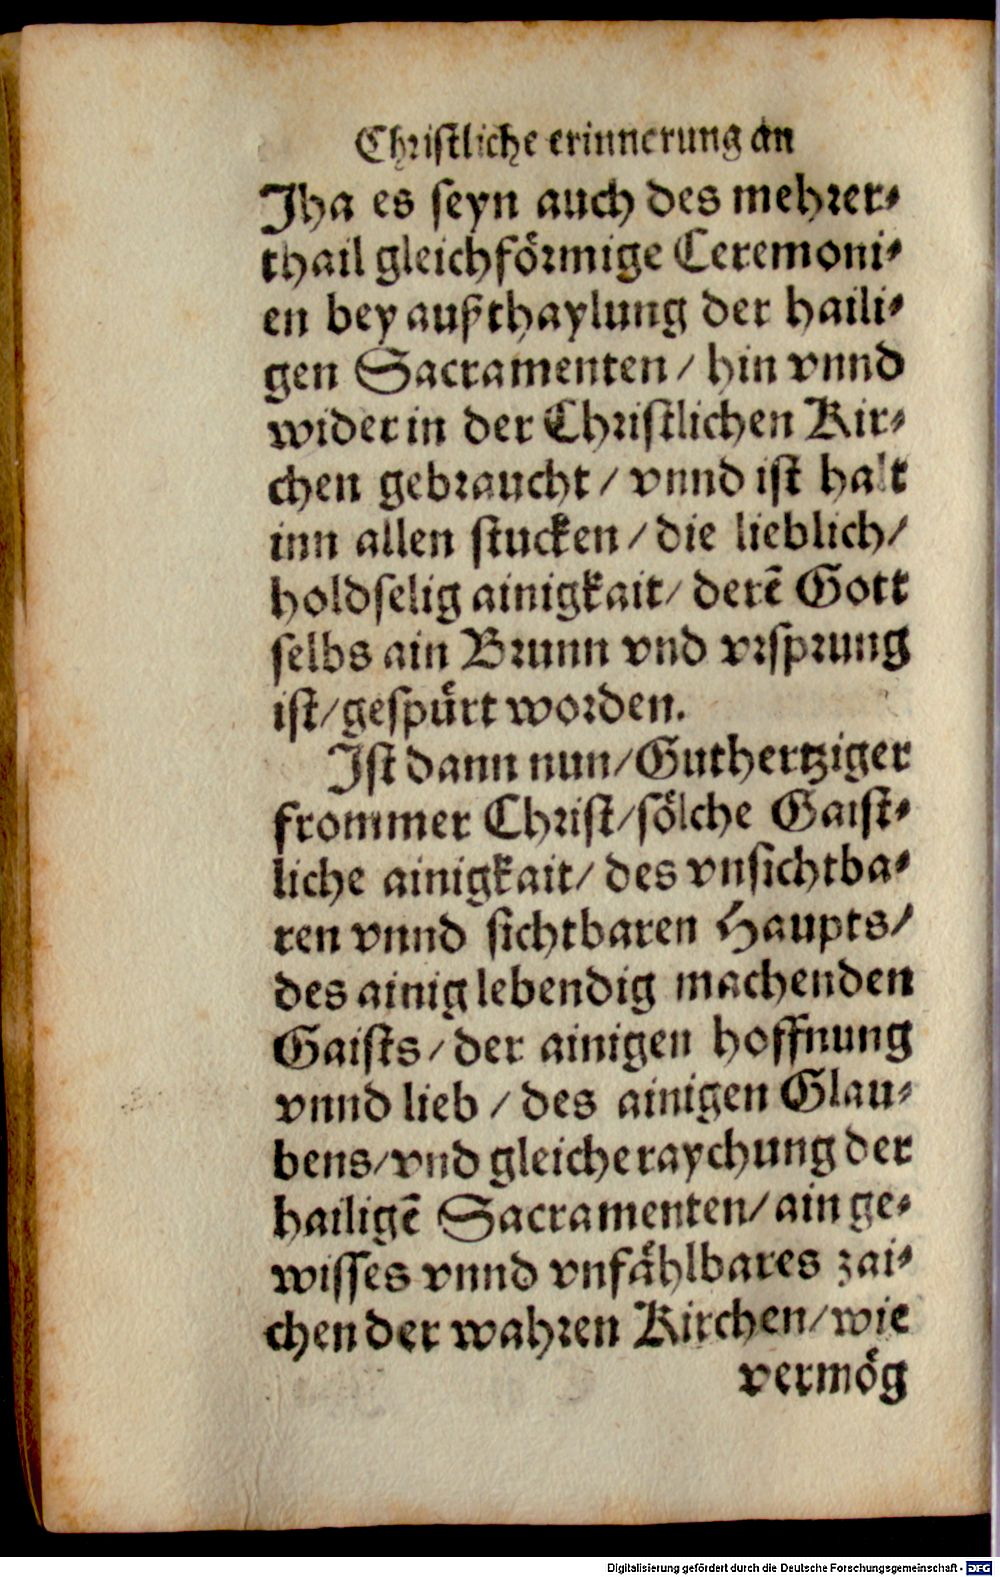 Christliche erinnerung an
Jha es seyn auch des mehrer⸗
thail gleichförmige Ceremoni⸗
en bey außthaylung der haili⸗
gen Sacramenten / hin vnnd
wider in der Christlichen Kir⸗
chen gebraucht / vnnd ist halt
inn allen stucken / die lieblich /
holdselig ainigkait / derē Gott
selbs ain Brunn vnd vrsprung
ist / gespürt worden.
Ist dann nun / Guthertziger
frommer Christ / sölche Gaist⸗
liche ainigkait / des vnsichtba⸗
ren vnnd sichtbaren Haupts /
des ainig lebendig machenden
Gaists / der ainigen hoffnung
vnnd lieb / des ainigen Glau⸗
bens / vnd gleiche raychung der
hailigē Sacramenten / ain ge⸗
wisses vnnd vnfählbares zai⸗
chen der wahren Kirchen / wie
vermög
Digitalisierung gefördert durch die Deutsche Forschungsgemeinschaft - DFG